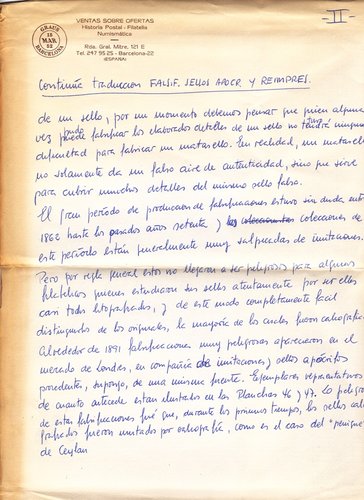 GRAUS
18
MAR.
82
BARCELONA
VENTAS SOBRE OFERTAS
Historia Postal - Filatelia
Numismática
Rda. Gral. Mitre, 121 E
Tel. 247 95 25 - Barcelona-22
(ESPAÑA)
-II-
Continúa traduccion FALSIF. SELLOS APOCR. Y REIMPRES.
de un sello, por un momento debemos pensar que quien alguna
vez pudo fabricar los elaborados detalles de un sello no tuvo ninguna
dificultad para fabricar un matasello. En realidad, un matasello
no solamente da un falso aire de autenticidad, sino que sirve
para cubrir muchos detalles del mismo sello falso.
El gran período de produccion de falsificaciones estuvo sin duda entre
1862 hasta los pasados años setenta, y las colecciones de
este período están generalmente muy salpicadas de imitaciones.
Pero por regla general estos no llegaron a ser peligrosos para algunos
filatelicos quienes estudiaron sus sellos atentamente por ser ellos
casi todos litografiados, y de este modo completamente fácil
distinguirlos de los originales, la mayoría de los cuales fueron calcografía
Alrededor de 1891 falsificaciones muy peligrosas aparecieron en el
mercado de Londres, en compañía de imitaciones y sellos apócrifos
procedentes, supongo, de una misma fuente. Ejemplares representativos
de cuanto antecede estan ilustrados en las Planchas 46 y 47. Lo peligroso
de estas falsificaciones fué que, durante los primeros tiempos, los sellos calco-
grafiados fueron imitados por calcografía, como es el caso del "penique"
de Ceylan